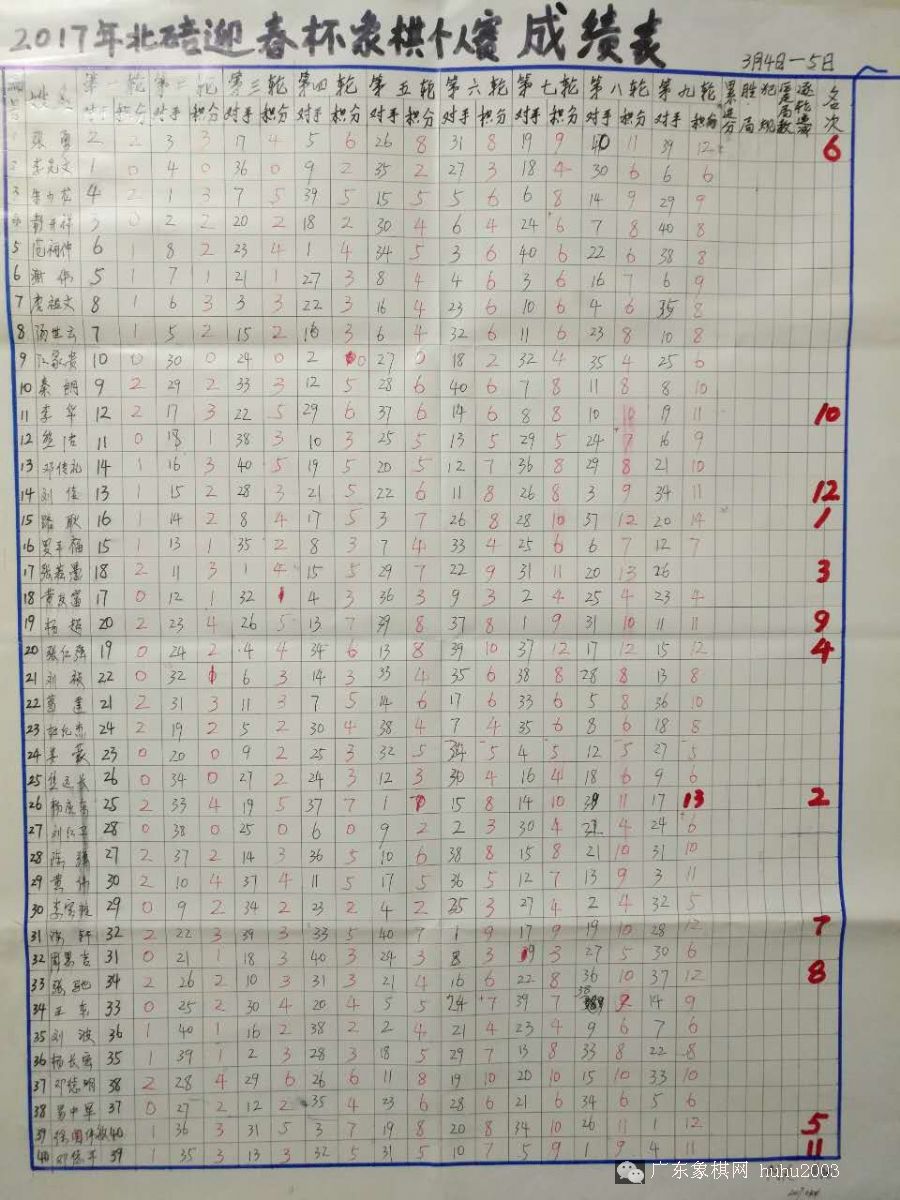 2017年北碚迎春杯象棋个人赛成绩表
3月4日—5日
第一轮 第二轮 第三轮 第四轮 第五轮 第六轮 第七轮 第八轮 第九轮 累进分 胜局 犯规 名次
对手 积分 对手 积分 对手 积分 对手 积分 对手 积分 对手 积分 对手 积分 对手 积分 对手 积分
1 张勇 2 2 3 3 17 4 5 6 26 8 31 8 19 9 40 11 39 12 6
2 1 0 4 0 36 0 9 2 35 2 27 3 18 4 30 6 6 6
3 4 2 1 3 7 5 39 5 15 5 5 6 6 8 14 9 29 9
3 0 2 2 20 2 18 2 30 4 6 4 24 6 7 8 40 8
5 6 1 8 2 23 4 1 4 34 5 3 6 40 6 22 6 38 8
6 谢伟 5 1 7 1 21 1 27 3 8 4 4 6 3 6 16 7 6 9
7 8 1 6 3 3 3 22 3 16 4 23 6 10 6 4 6 35 8
8 7 1 5 2 15 2 16 3 6 4 32 6 11 6 23 8 10 8
9 江家贵 10 0 30 0 24 0 2 0 27 0 18 2 32 4 35 4 25 6
10 秦朗 9 2 29 2 33 3 12 5 28 6 40 6 7 8 11 8 8 10
11 李华 12 2 17 3 22 5 29 6 37 6 14 6 8 8 10 10 19 11 10
12 熊洁 11 0 18 1 38 3 10 3 25 5 13 5 29 5 24 7 16 9
13 邓传礼 14 1 16 3 40 5 19 5 20 5 12 7 36 8 29 8 21 10
14 刘俊 13 1 15 2 28 3 21 5 22 6 11 8 26 8 3 9 34 11 12
15 路耿 16 1 14 2 8 4 17 5 3 7 26 8 28 10 37 12 20 14 1
16 罗平福 15 1 13 1 35 2 8 3 7 4 33 4 25 6 6 7 12 7
17 18 2 11 3 1 4 15 5 29 7 22 9 31 11 20 13 26 3
18 黄友富 17 0 12 1 32 1 4 3 36 3 9 3 2 4 25 4 23 4
19 杨超 20 2 23 4 26 5 13 7 39 8 37 8 1 9 31 10 11 11 9
20 张仁强 19 0 24 2 4 4 34 6 13 8 39 10 37 12 17 12 15 12 4
21 22 0 32 1 6 3 14 3 33 4 35 6 38 8 28 8 13 8
22 葛莲 21 2 31 3 11 3 7 5 14 6 17 6 33 6 5 8 36 10
23 24 2 19 2 5 2 30 4 38 4 7 4 35 6 8 6 18 8
24 23 0 20 0 9 2 25 3 32 5 34 5 4 5 12 5 27 5
25 26 0 34 0 27 2 24 3 12 3 30 4 16 4 18 6 9 6
26 25 2 33 4 19 5 37 7 1 15 8 14 10 39 11 17 13 2
27 28 0 38 0 25 0 6 0 9 2 2 3 30 4 4 24 6
28 27 2 37 2 14 3 36 5 10 6 38 8 15 8 21 10 31 10
29 黄伟 30 2 10 4 37 4 11 5 17 5 36 5 12 7 13 9 3 11
30 29 0 9 2 34 2 23 2 4 2 35 3 27 4 2 4 32 5
31 32 2 22 3 39 3 33 5 40 7 1 9 17 9 19 10 28 12 7
32 31 0 21 1 18 3 40 3 24 3 8 3 3 27 5 30 6
33 张驰 34 2 26 2 10 3 31 3 21 4 16 6 22 8 36 10 37 12 8
34 王东 33 0 25 2 30 4 20 4 5 5 24 7 39 7 38 9 14 9
35 刘波 36 1 40 1 16 2 38 2 2 4 21 4 23 4 9 6 7 6
36 35 1 39 1 2 3 28 3 18 5 29 7 13 8 33 8 22 8
37 邓德明 38 2 28 4 29 6 26 6 11 8 19 10 20 10 15 10 33 10
38 易中军 37 0 27 2 12 2 35 4 23 6 28 6 21 6 34 6 5 6
39 40 1 36 3 31 5 3 7 19 8 20 8 34 10 26 11 1 12 5
40 邓启平 39 1 35 3 13 3 32 5 31 5 10 7 5 9 1 9 4 11 11
广东象棋网 huhu2003